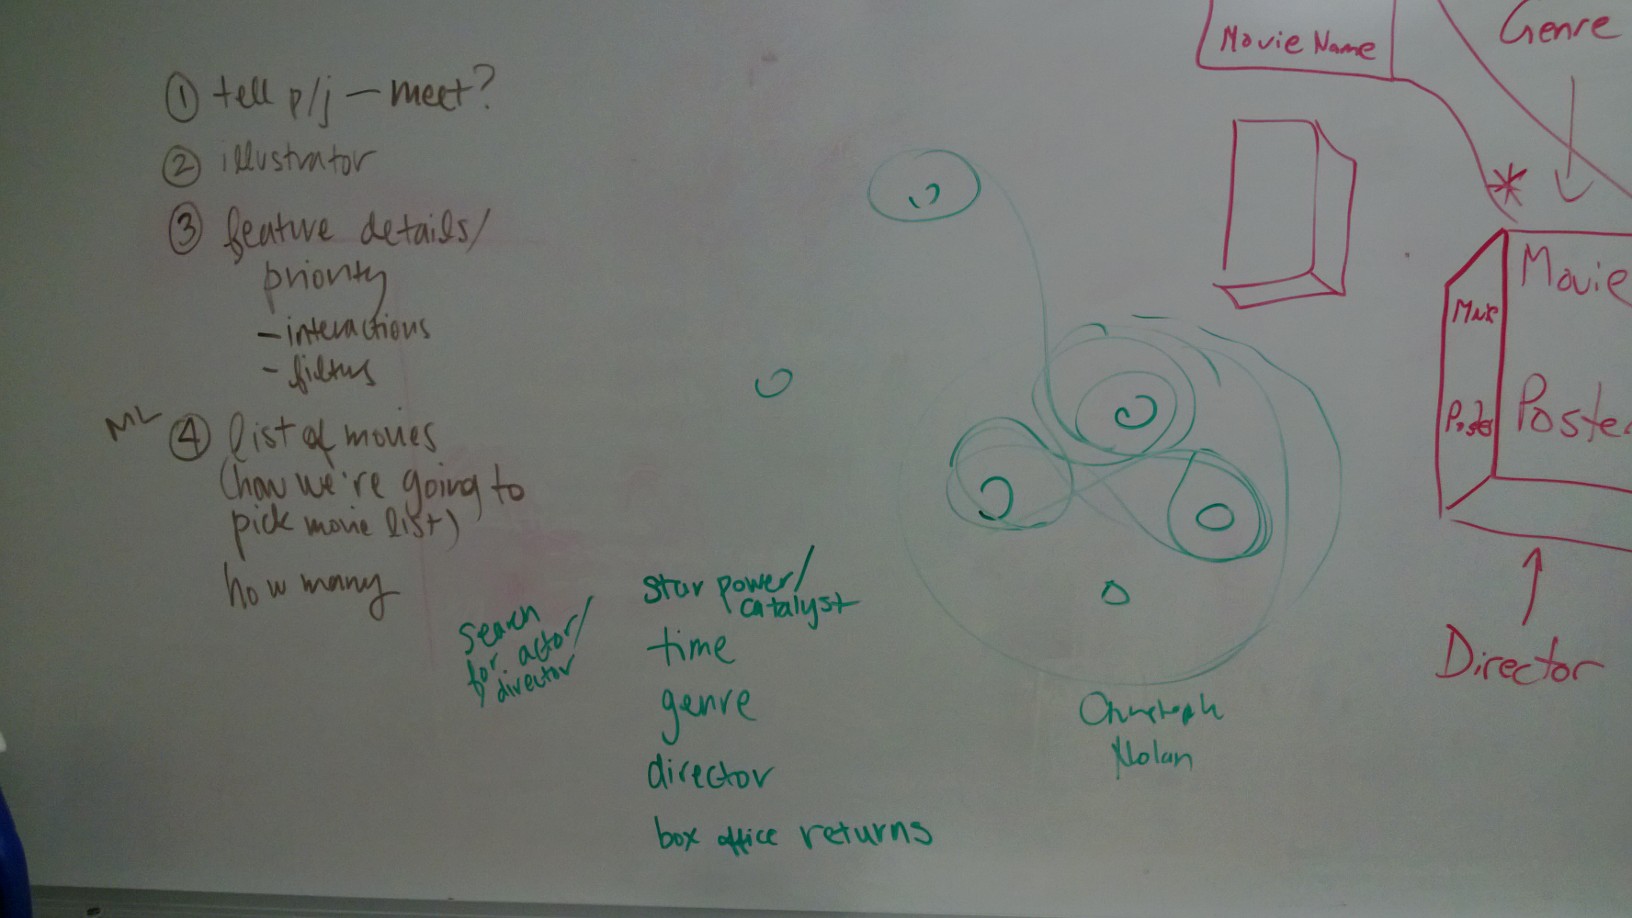 ① tell p/j — meet?
② illustrator
③ feature details/
priority
- interactions
- filters
ML ④ list of movies
(how we're going to
pick movie list)
how many
search
for actor/
director
star power/
catalyst
time
genre
director
box office returns
Nolan
Movie Name
Genre
*
Movie
Poster
Director